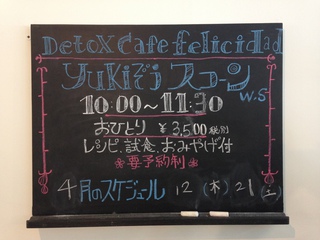 Detox Cafe felicidad
Yukiぞう スコーン W.S
10:00〜11:30
おひとり ¥3,500 税別
レシピ、試食、おみやげ付
※要予約制※
4月のスケジュール 12(木)21(土)